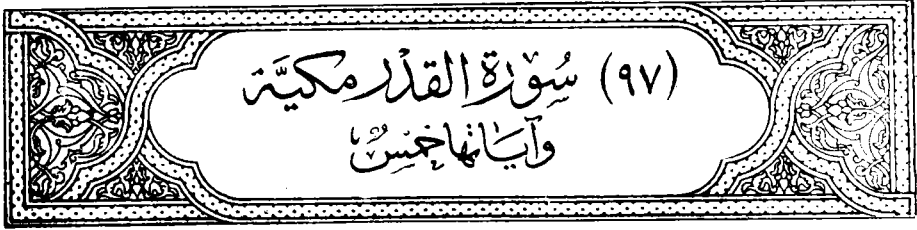 (٩٧) سُورَةِ القَدْرِ مَكِيَّة
وَآيَاتُهَا خَمْسٌ